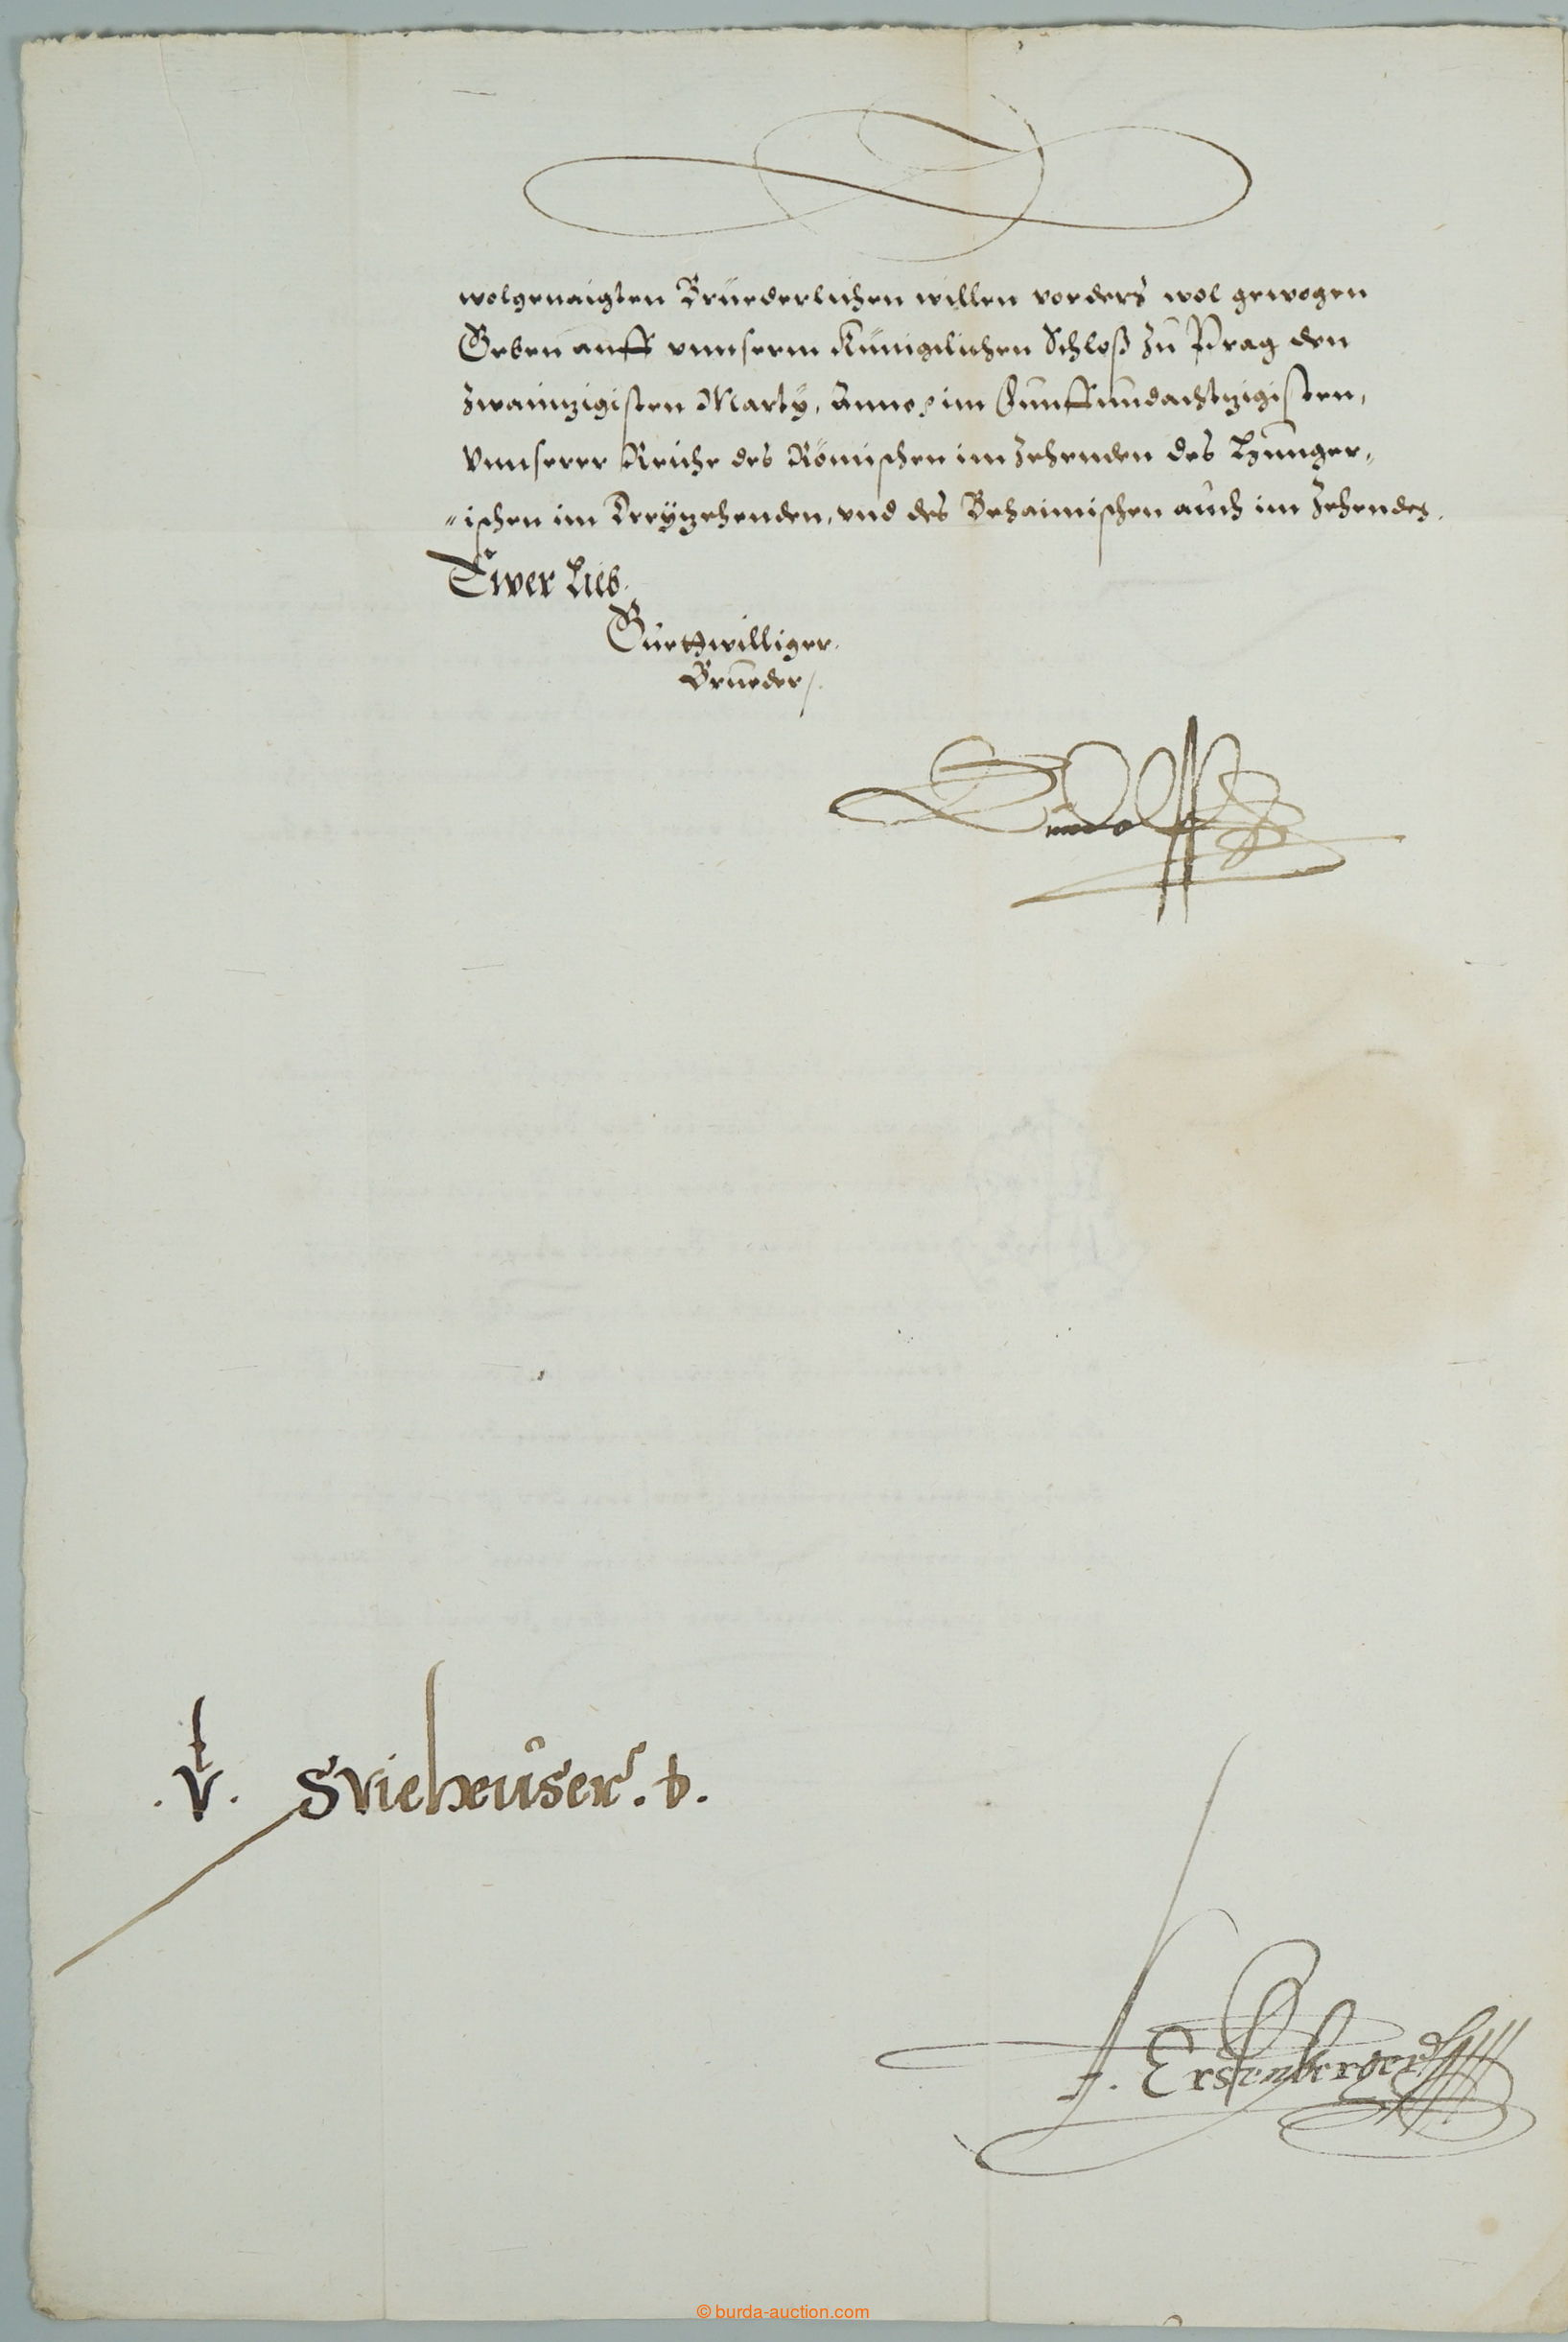 wolgenaigten Brüederlichen willen vorders wol gewogen
Geben auff vnnserm Künigclichen Schloß zu Prag den
zwaintzigisten Marty, Anno ꝛ im Fünffundachtzigisten,
Vnnserer Reiche des Römischen im zehenden des Hunger„
„ischen im Dreytzehenden, vnd des Behaimischen auch im Zehenden.
Ewer Lieb.
Guettwilliger.
Brueder /.
Rudolff
.V. SVieheuser. D.
A. Erstenberger
© burda-auction.com